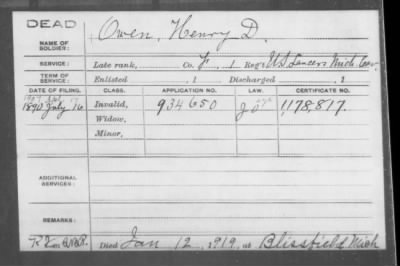 DEAD
NAME OF SOLDIER: Owen, Henry D.
SERVICE: Late rank, Co. F, 1 Reg't U.S. Lancers Mich. Cav.
TERM OF SERVICE: Enlisted , 1 Discharged , 1
DATE OF FILING. CLASS. APPLICATION NO. LAW. CERTIFICATE NO.
1890 July 16 Invalid, 934650 1178,817.
Widow,
Minor,
ADDITIONAL SERVICES:
REMARKS:
Died Jan 12, 1919, at Blissfield Mich